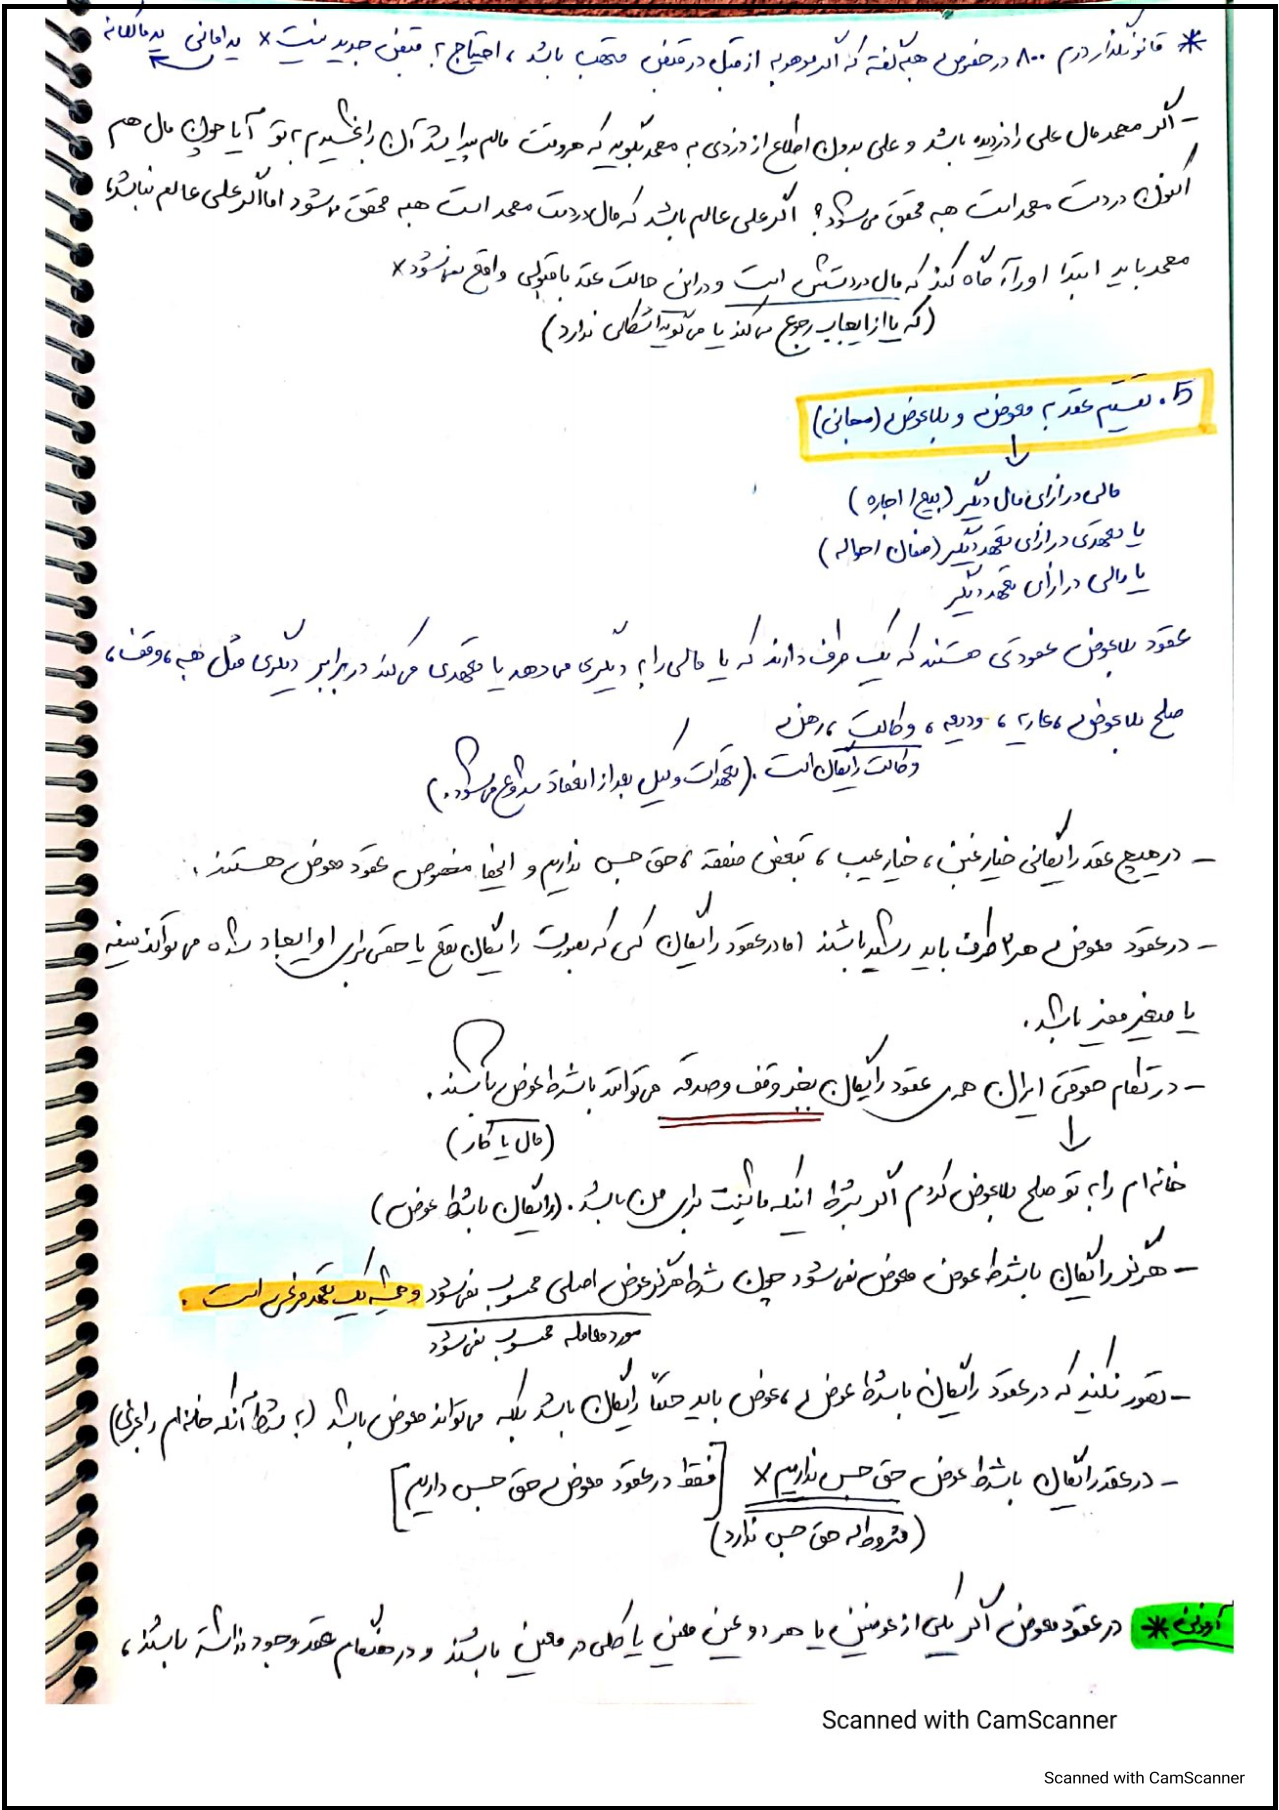 * قانونگذار در م ۸۰۰ در خصوص هبه گفته که اگر موهوبه از قبل در قبض متهب باشد، احتیاج به قبض جدید نیست × ید امانی ید مالکانه
- اگر محمد مال علی را دزدیده باشد و علی بدون اطلاع از دزدی به محمد بگوید که هر وقت مالم پیدا شد آن را بخشیدم به تو آیا چون مال هم
اکنون در دست محمد است هبه محقق می‌شود؟ اگر علی عالم باشد که مال در دست محمد است هبه محقق میشود اما اگر علی عالم نباشد،
محمد باید ابتدا او را آگاه کند که مال در دستش است و در این حالت عقد با قبولی واقع نمی‌شود ×
(که یا از ایجاب رجوع می‌کند یا می‌گوید اشکالی ندارد)
5. تقسیم عقد به معوض و بلاعوض (مجانی)
↓
مالی در ازای مال دیگر (بیع / اجاره)
یا تعهدی در ازای تعهد دیگر (ضمان / حواله)
یا مالی در ازای تعهد دیگر
عقود بلاعوض عقودی هستند که یک طرف دارند که یا مالی را به دیگری می‌دهد یا تعهدی می‌کند در برابر دیگری مثل هبه، وقف،
صلح بلاعوض، عاریه، ودیعه، وکالت، رهن
وکالت رایگان است. (تعهدات وکیل بعد از انعقاد شروع می‌شود.)
- در هیچ عقد رایگانی خیار غبن، خیار عیب، تبعض صفقه، حق حبس نداریم و اینها مخصوص عقود معوض هستند.
- در عقود معوض هر ۲ طرف باید رشید باشند اما در عقود رایگان کسی که بصورت رایگان نفع یا حقی برای او ایجاد شده می‌تواند سفیه
یا صغیر ممیز باشد.
- در نظام حقوقی ایران همه‌ی عقود رایگان بغیر وقف و صدقه می‌توانند با شرط عوض باشند.
(مال یا کار)
↓
خانه ام را به تو صلح بلاعوض کردم اگر بشرط اینکه ماشینت برای من باشد. (رایگان با شرط عوض)
- هرگز رایگان با شرط عوض معوض نمی‌شود چون شرط هرگز عوض اصلی محسوب نمی‌شود و همیشه یک تعهد فرعی است.
مورد معامله محسوب نمی‌شود
- تصور نکنید که در عقود رایگان با شرط عوض، عوض باید حتماً رایگان باشد بلکه می‌تواند معوض باشد (به شرط آنکه خانه ام را بخری)
- در عقد رایگان با شرط عوض حق حبس نداریم × [فقط در عقود معوض حق حبس داریم]
(مشروط له حق حبس ندارد)
آزمون * در عقود معوض اگر یکی از عوضین یا هر دو عین معین یا کلی در معین باشند و در هنگام عقد وجود داشته باشند،
Scanned with CamScanner
Scanned with CamScanner